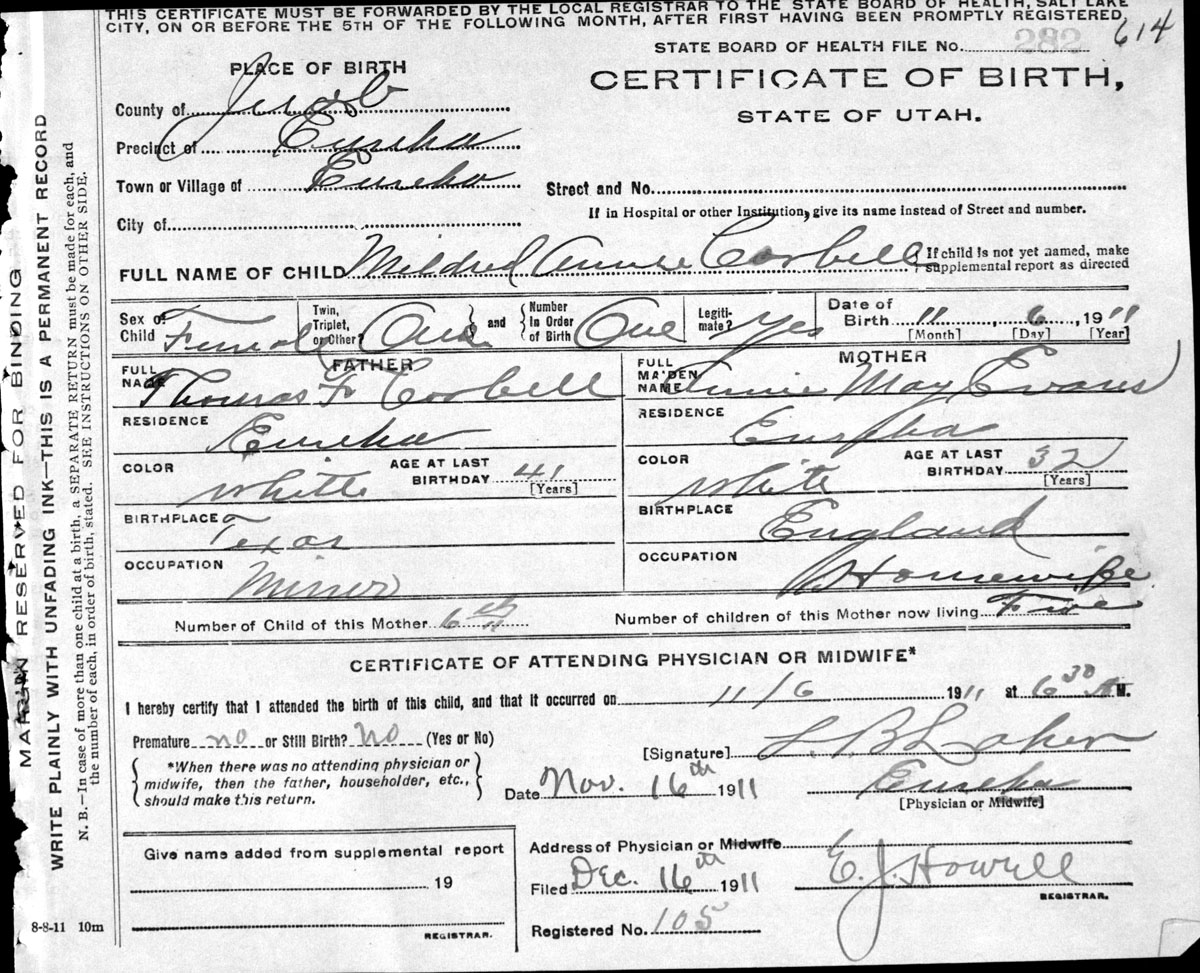 THIS CERTIFICATE MUST BE FORWARDED BY THE LOCAL REGISTRAR TO THE STATE BOARD OF HEALTH, SALT LAKE
CITY, ON OR BEFORE THE 5TH OF THE FOLLOWING MONTH, AFTER FIRST HAVING BEEN PROMPTLY REGISTERED.
614
STATE BOARD OF HEALTH FILE No. 282
PLACE OF BIRTH
CERTIFICATE OF BIRTH,
STATE OF UTAH.
County of Juab
Precinct of Eureka
Town or Village of Eureka
Street and No.
If in Hospital or other Institution, give its name instead of Street and number.
City of
FULL NAME OF CHILD Mildred Annie Corbell
If child is not yet named, make
supplemental report as directed
Sex of Child Female
Twin, Triplet, or Other? One and
Number In Order of Birth One
Legitimate? Yes
Date of Birth 11, 6, 1911
[Month] [Day] [Year]
FATHER
FULL NAME Thomas F Corbell
RESIDENCE
Eureka
COLOR White
AGE AT LAST BIRTHDAY 41
[Years]
BIRTHPLACE Texas
OCCUPATION Minor
MOTHER
FULL MAIDEN NAME Annie May Evans
RESIDENCE
Eureka
COLOR White
AGE AT LAST BIRTHDAY 32
[Years]
BIRTHPLACE England
OCCUPATION Housewife
Number of Child of this Mother 6th
Number of children of this Mother now living Five
CERTIFICATE OF ATTENDING PHYSICIAN OR MIDWIFE*
I hereby certify that I attended the birth of this child, and that it occurred on 11/6 1911 at 6 30 A M.
Premature no or Still Birth? no (Yes or No)
*When there was no attending physician or
midwife, then the father, householder, etc.,
should make this return.
[Signature] L. B. Laker
Eureka
[Physician or Midwife]
Date Nov. 16th 1911
Give name added from supplemental report
19
REGISTRAR.
Address of Physician or Midwife
Filed Dec. 16th 1911
E. J. Howell
REGISTRAR.
Registered No. 105
8-8-11 10m
MARGIN RESERVED FOR BINDING
WRITE PLAINLY WITH UNFADING INK—THIS IS A PERMANENT RECORD
N. B.—In case of more than one child at a birth, a SEPARATE RETURN must be made for each, and
the number of each, in order of birth, stated. SEE INSTRUCTIONS ON OTHER SIDE.